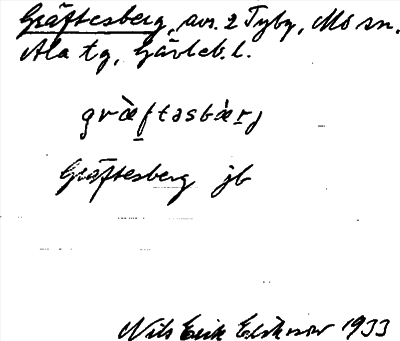 Gräftesberg, avs. 2 Tyby, Mo sn,
Ala tg, Gävleb. l.
gràftəsbàrj
Gräftesberg jb
Nils Erik Eriksson 1933